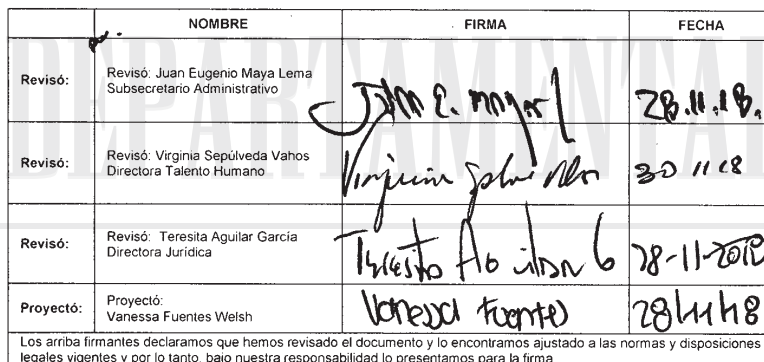 NOMBRE FIRMA FECHA
DEPARTAMENTAL
Revisó: Revisó: Juan Eugenio Maya Lema
Subsecretario Administrativo
28.11.18.
Revisó: Revisó: Virginia Sepúlveda Vahos
Directora Talento Humano
Virginia 30 11 18
Revisó: Revisó: Teresita Aguilar García
Directora Jurídica
28-11-2018
Proyectó: Proyectó:
Vanessa Fuentes Welsh
Vanessa Fuentes 28/11/18
Los arriba firmantes declaramos que hemos revisado el documento y lo encontramos ajustado a las normas y disposiciones
legales vigentes y por lo tanto, bajo nuestra responsabilidad lo presentamos para la firma